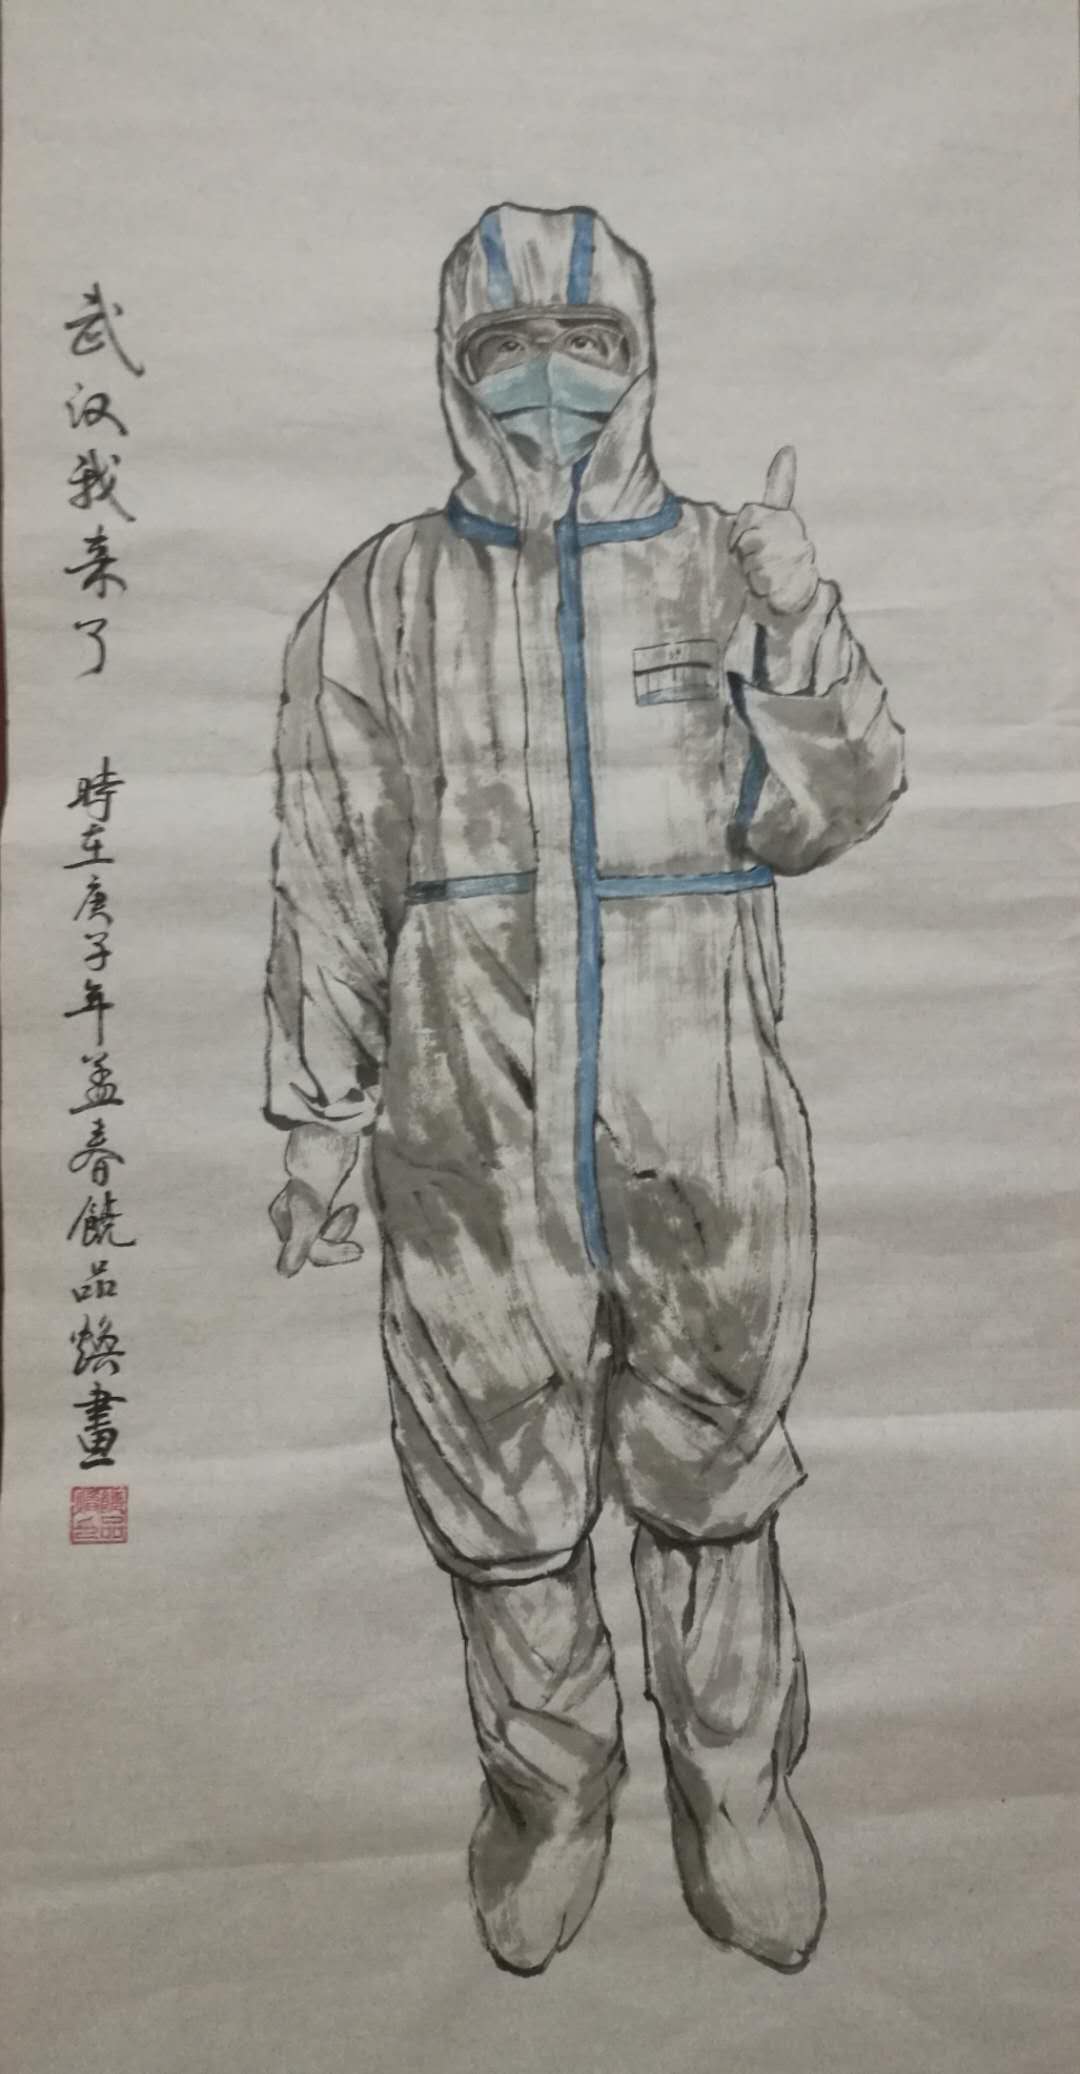 武汉我来了 時在庚子年孟春饒品煥畫